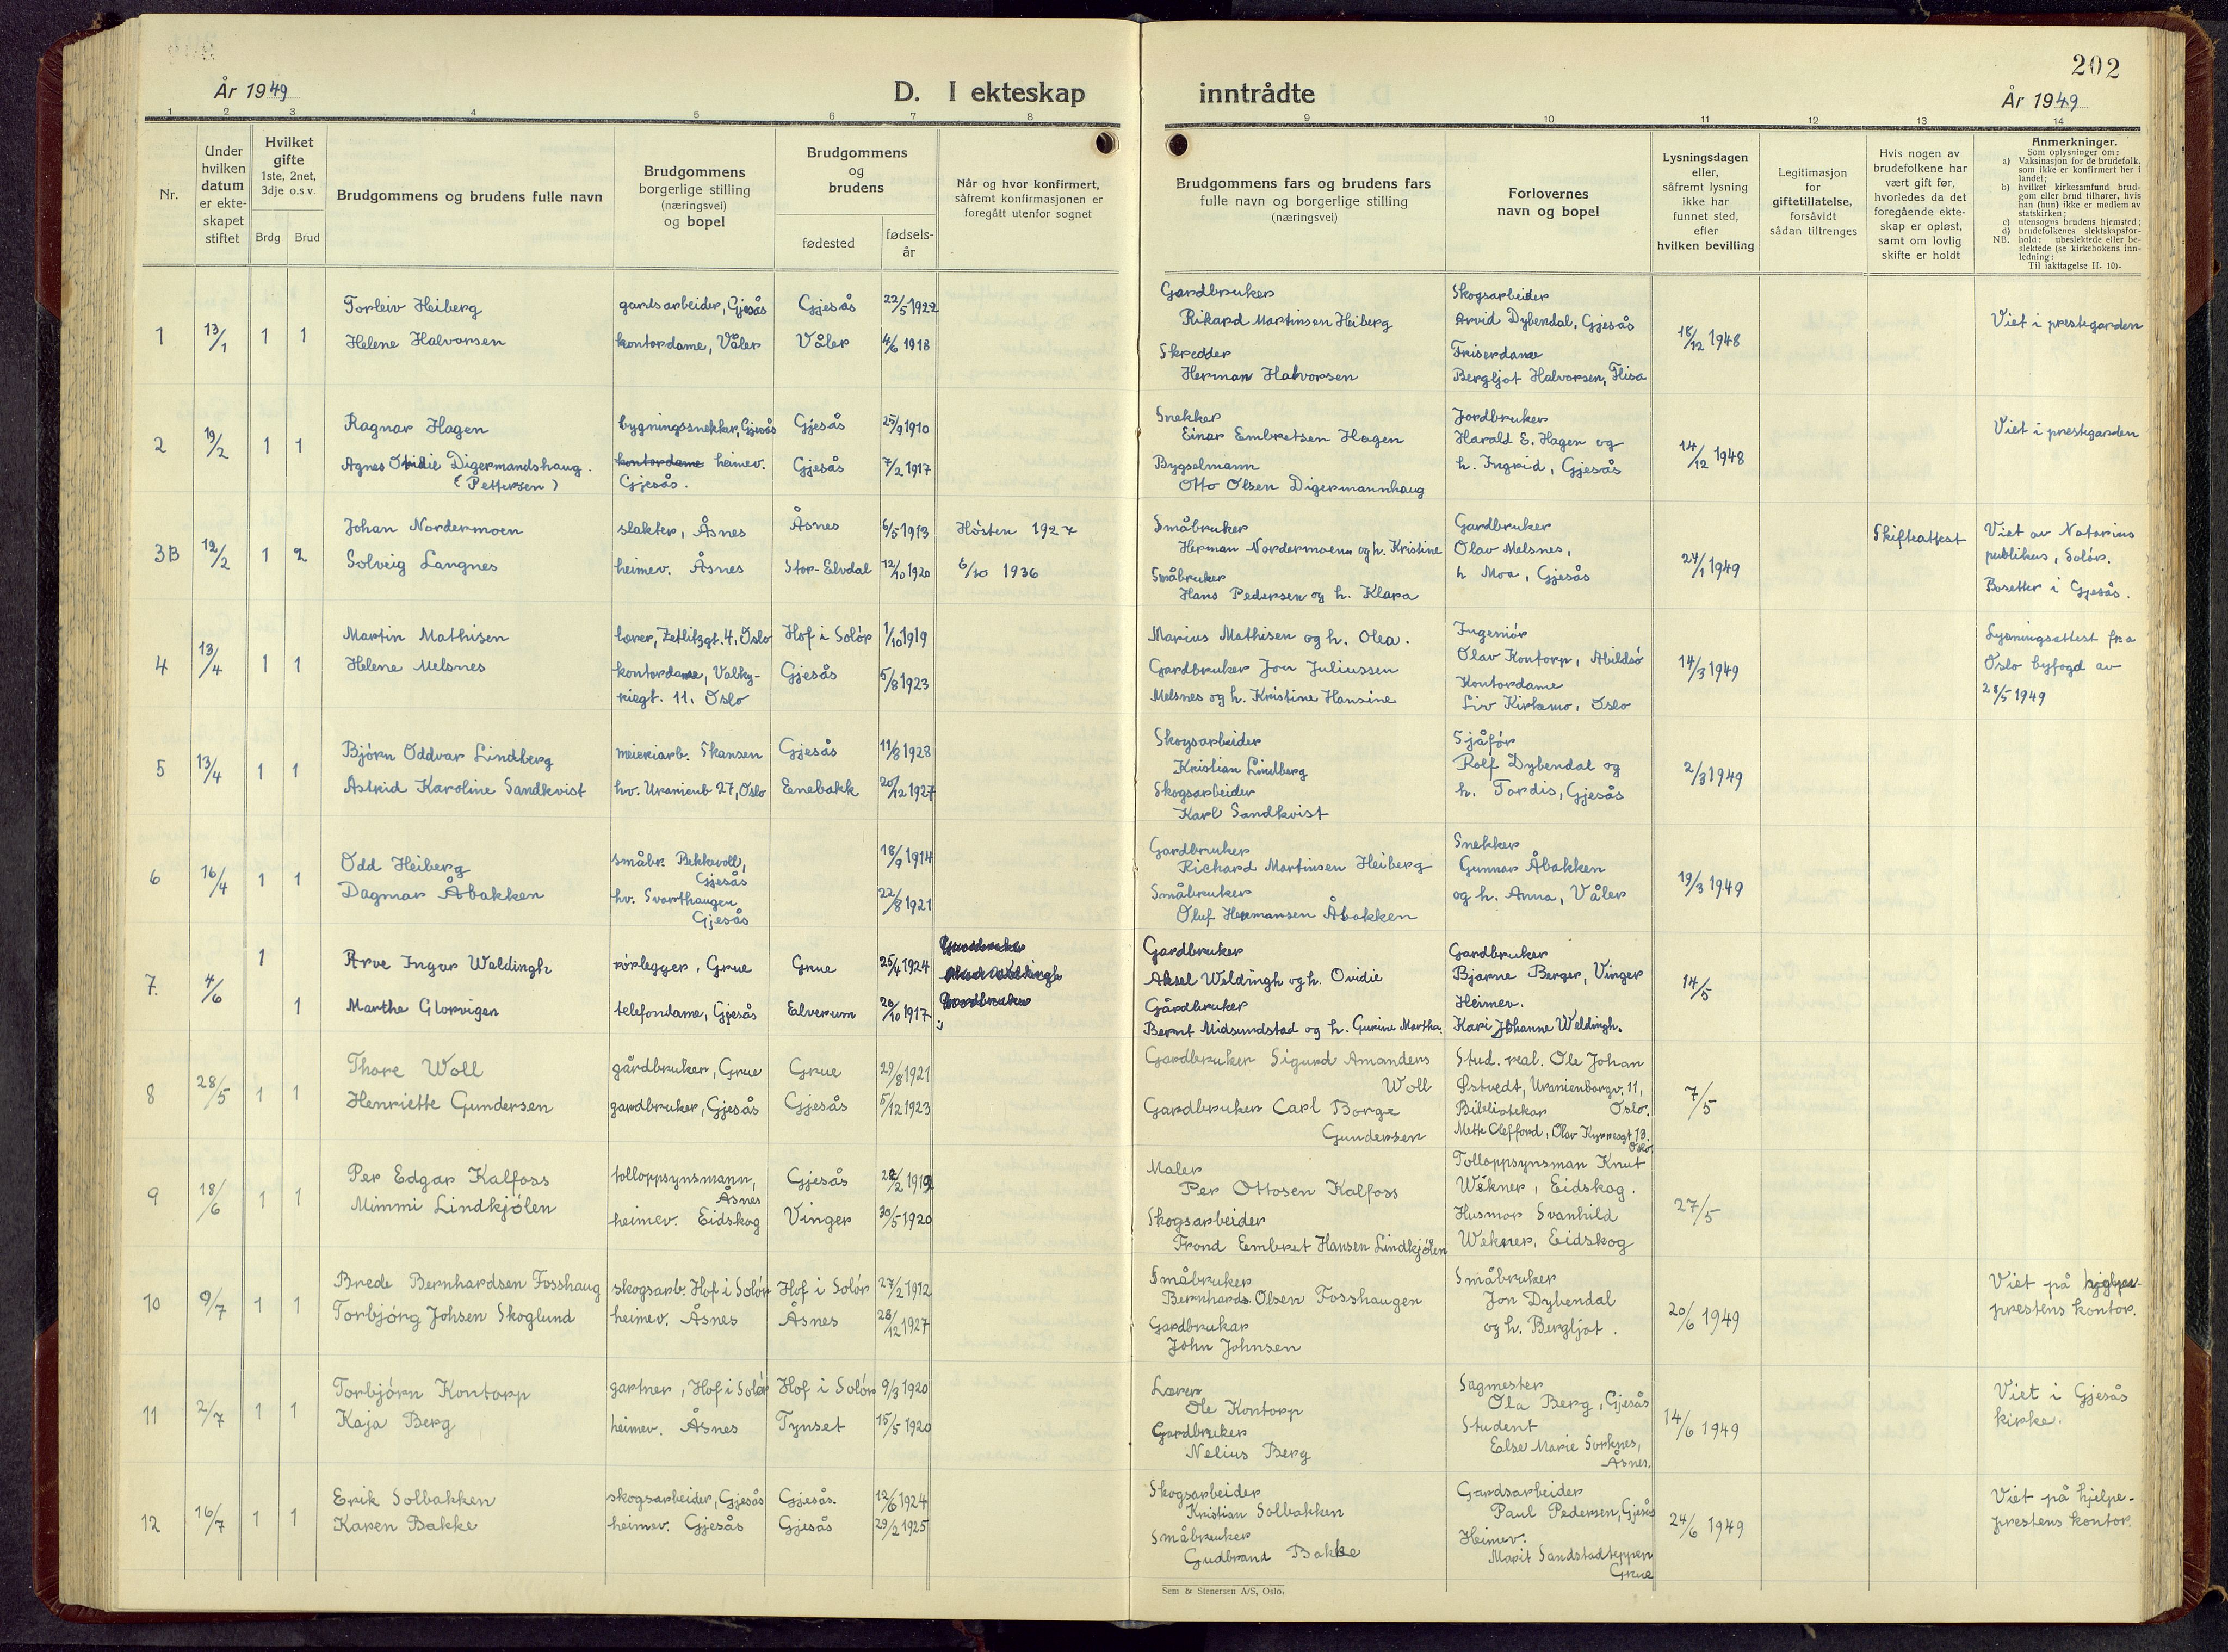 202
År 1949
D. I ekteskap inntrådte
År 1949
1 2 3 4 5 6 7 8 9 10 11 12 13 14
Nr.
Under
hvilken
datum
er ekte-
skapet
stiftet
Hvilket
gifte
1ste, 2net,
3dje o.s.v.
Brdg Brud
Brudgommens og brudens fulle navn
Brudgommens
borgerlige stilling
(næringsvei)
og bopel
Brudgommens
og
brudens
fødested
fødsels-
år
Når og hvor konfirmert,
såfremt konfirmasjonen er
foregått utenfor sognet
Brudgommens fars og brudens fars
fulle navn og borgerlige stilling
(næringsvei)
Forlovernes
navn og bopel
Lysningsdagen
eller,
såfremt lysning
ikke har
funnet sted,
efter
hvilken bevilling
Legitimasjon
for
giftetillatelse,
forsåvidt
sådan tiltrenges
Hvis nogen av
brudefolkene har
vært gift før,
hvorledes da det
foregående ekte-
skap er opløst,
samt om lovlig
skifte er holdt
Anmerkninger.
Som oplysninger om:
a) Vaksinasjon for de brudefolk,
som ikke er konfirmert her i
landet;
b) hvilket kirkesamfund brud-
gom eller brud tilhører, hvis
han (hun) ikke er medlem av
statskirken;
c) utensogns brudens hjemsted;
d) brudefolkenes slektskapsfor-
NB. hold: ubeslektede eller be-
slektede (se kirkebokens inn-
ledning:
Til iakttagelse II. 10).
1 13/1 1 1
Torleiv Heiberg
Helene Halvorsen
gardsarbeider, Gjesås
kontordame, Våler
Gjesås
Våler
22/5 1922
4/6 1918
Gardbruker
Rikard Martinsen Heiberg
Skredder
Herman Halvorsen
Skogsarbeider
Arvid Dybendal, Gjesås
Friserdame
Bergljot Halvorsen, Flisa
18/12 1948
Viet i prestegarden
2 19/2 1 1
Ragnar Hagen
Agnes Otidie Digermandshaug.
(Pettersen)
bygningssnekker, Gjesås
kontordame heimev.
Gjesås.
Gjesås
Gjesås
25/9 1910
7/2 1917
Snekker
Einar Embretsen Hagen
Bygselmann
Otto Olsen Digermannhaug
Jordbruker
Harald E. Hagen og
h. Ingrid, Gjesås
14/12 1948
Viet i prestegarden
3B 12/2 1 2
Johan Nordermoen
Solveig Langnes
slakter, Åsnes
heimev. Åsnes
Åsnes
Stor-Elvdal
6/5 1913
12/10 1920
Høsten 1927
6/10 1936
Småbruker
Herman Nordermoen og h. Kristine
Småbruker
Hans Pedersen og h. Klara
Gardbruker
Olav Melsnes,
h Moa, Gjesås
24/1 1949
Skifteattest
Viet av Notarius
publikus, Solør.
Bosetter i Gjesås.
4 13/4 1 1
Martin Mathisen
Helene Melsnes
lærer, Zetlitzgt. 4, Oslo
kontordame, Valky-
riegt. 11, Oslo
Hof i Solør
Gjesås
1/10 1919
5/8 1923
Marius Mathisen og h. Olea.
Gardbruker Jon Juliussen
Melsnes og h. Kristine Hansine
Ingeniør
Olav Kontorp, Abildsø
Kontordame
Liv Kirkemo, Oslo
14/3 1949
Lysningsattest fra
Oslo byfogd av
28/5 1949
5 13/4 1 1
Bjørn Oddvar Lindberg
Astrid Karoline Sandkvist
meieriarb. Skansen
hv. Uranienb 27, Oslo
Gjesås
Enebakk
11/8 1928
20/12 1927
Skogsarbeider
Kristian Lindberg
Skogsarbeider
Karl Sandkvist
Sjåfør
Rolf Dybendal og
h. Tordis, Gjesås
2/3 1949
6 16/4 1 1
Odd Heiberg
Dagmar Åbakken
småbr. Bekkevoll,
Gjesås
hv. Svarthaugen
Gjesås
18/9 1914
22/8 1921
Gardbruker
Richard Martinsen Heiberg
Småbruker
Oluf Hermansen Åbakken
Snekker
Gunnar Åbakken
og h. Anna, Våler
19/3 1949
7. 4/6 1 1
Arve Ingar Weldingh
Marthe Glorvigen
rørlegger, Grue
telefondame, Gjesås
Grue
Elverum
25/4 1924
26/10 1917
Gardbruker
Aksel Weldingh og h. Ovidie
Gårdbruker
Bernt Midsundstad og h. Gurine Martha.
Gardbruker
Bjarne Berger, Vinger
Heimev.
Kari Johanne Weldingh.
14/5
8 28/5 1 1
Thore Woll
Henriette Gundersen
gårdbruker, Grue
gardbruker, Gjesås
Grue
Gjesås
29/8 1921
5/12 1923
Gardbruker Sigurd Amanders
Woll
Gardbruker Carl Borge
Gundersen
Stud. real. Ole Johan
Østvedt, Uranienborgv. 11,
Bibliotekar Oslo.
Mette Clefford, Olav Kyrresgt 13.
Oslo.
7/5
9 18/6 1 1
Per Edgar Kalfoss
Mimmi Lindkjølen
tolloppsynsmann,
Åsnes
heimev. Eidskog
Gjesås
Vinger
22/2 1919
30/5 1920
Maler
Per Ottosen Kalfoss
Skogsarbeider
Trond Embret Hansen Lindkjølen
Tolloppsynsman Knut
Wekner, Eidskog.
Husmor Svanhild
Wekner, Eidskog
27/5
10 9/7 1 1
Brede Bernhardsen Fosshaug
Torbjørg Johsen Skoglund
skogsarb. Hof i Solør
heimev. Åsnes
Hof i Solør
Åsnes
27/2 1912
28/12 1927
Småbruker
Bernhards Olsen Fosshaugen
Gardbrukar
John Johnsen
Småbruker
Jon Dybendal
og h. Bergljot.
20/6 1949
Viet på hjelpe-
prestens kontor.
11 2/7 1 1
Torbjørn Kontorp
Kaja Berg
gartner, Hof i Solør
heimev. Åsnes
Hof i Solør
Tynset
9/3 1920
15/5 1920
Lærer
Ole Kontorp
Gardbruker
Nelius Berg
Sagmester
Ola Berg, Gjesås
Student
Else Marie Sorknes,
Åsnes.
14/6 1949
Viet i Gjesås
kirke.
12 16/7 1 1
Erik Solbakken
Karen Bakke
skogsarbeider, Gjesås
heimev. Gjesås
Gjesås.
Gjesås
12/6 1924
29/2 1925
Skogsarbeider
Kristian Solbakken
Småbruker
Gudbrand Bakke
Gardsarbeider
Paul Pedersen, Gjesås
Heimev.
Marit Sandstadteppen
Grue
24/6 1949
Viet på hjelpe-
prestens kontor.
Sem & Stenersen A/S, Oslo.